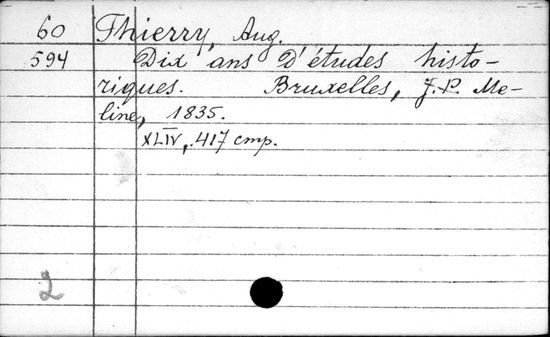 60 Thierry, Aug.
594 Dix ans d'études histo-
riques. Bruxelles, J.P. Me-
line, 1835.
XLIV, 417 стр.
2